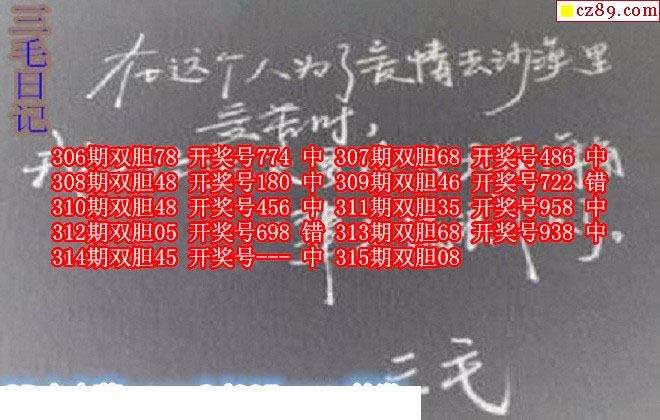 cz89.com
三毛日记
在这个人为了爱情去沙漠里
受苦时,
306期双胆78 开奖号774 中 307期双胆68 开奖号486 中
308期双胆48 开奖号180 中 309期双胆46 开奖号722 错
310期双胆48 开奖号456 中 311期双胆35 开奖号958 中
312期双胆05 开奖号698 错 313期双胆68 开奖号938 中
314期双胆45 开奖号--- 中 315期双胆08
三毛